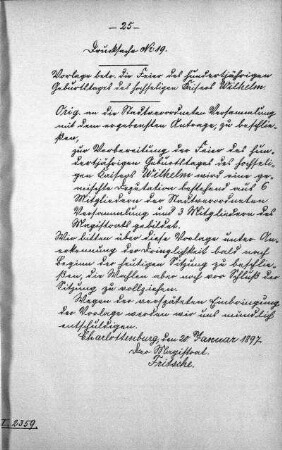 - 25 -
Drucksache No 19.
Vorlage betr. die Feier des hundertjährigen
Geburtstages des hochseligen Kaisers Wilhelm
Orig. an der Stadtverordneten Versammlung
mit dem ergebensten Antrage, zu beschlie-
ßen,
zur Vorbereitung der Feier des hun-
dertjährigen Geburtstages des hochseli-
gen Kaisers Wilhelm wird eine ge-
mischte Deputation bestehend aus 6
Mitgliedern der Stadtverordneten
Versammlung und 3 Mitgliedern des
Magistrats gebildet.
Wir bitten über diese Vorlage unter An-
erkennung der Dringlichkeit bald nach
Beginn der heutigen Sitzung zu beschlie-
ßen, die Wahlen aber noch vor Schluß der
Sitzung zu vollziehen.
Wegen der verspäteten Einbringung
der Vorlage werden wir uns mündlich
entschuldigen.
Charlottenburg, den 20 Januar 1897.
Der Magistrat.
Fritsche.
I. 2359.